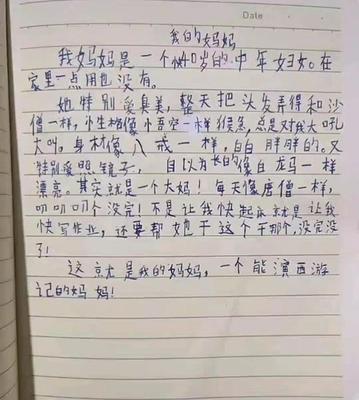 Date
我的妈妈
我妈妈是一个快40岁的中年妇女。在
家里一点用也没有。
她特别爱臭美,整天把头发弄得和沙
僧一样,性格像悟空一样猴急,总是对我大吼
大叫。身材像八戒一样,白白胖胖的。又
特别爱照镜子,自以为长的像白龙马一样
漂亮。其实就是一个大妈!每天像唐僧一样,
叨叨叨个没完!不是让我快起床就是让我
快写作业,还要帮她干这个干那个,没完没
了!
这就是我的妈妈,一个能演西游
记的妈妈!